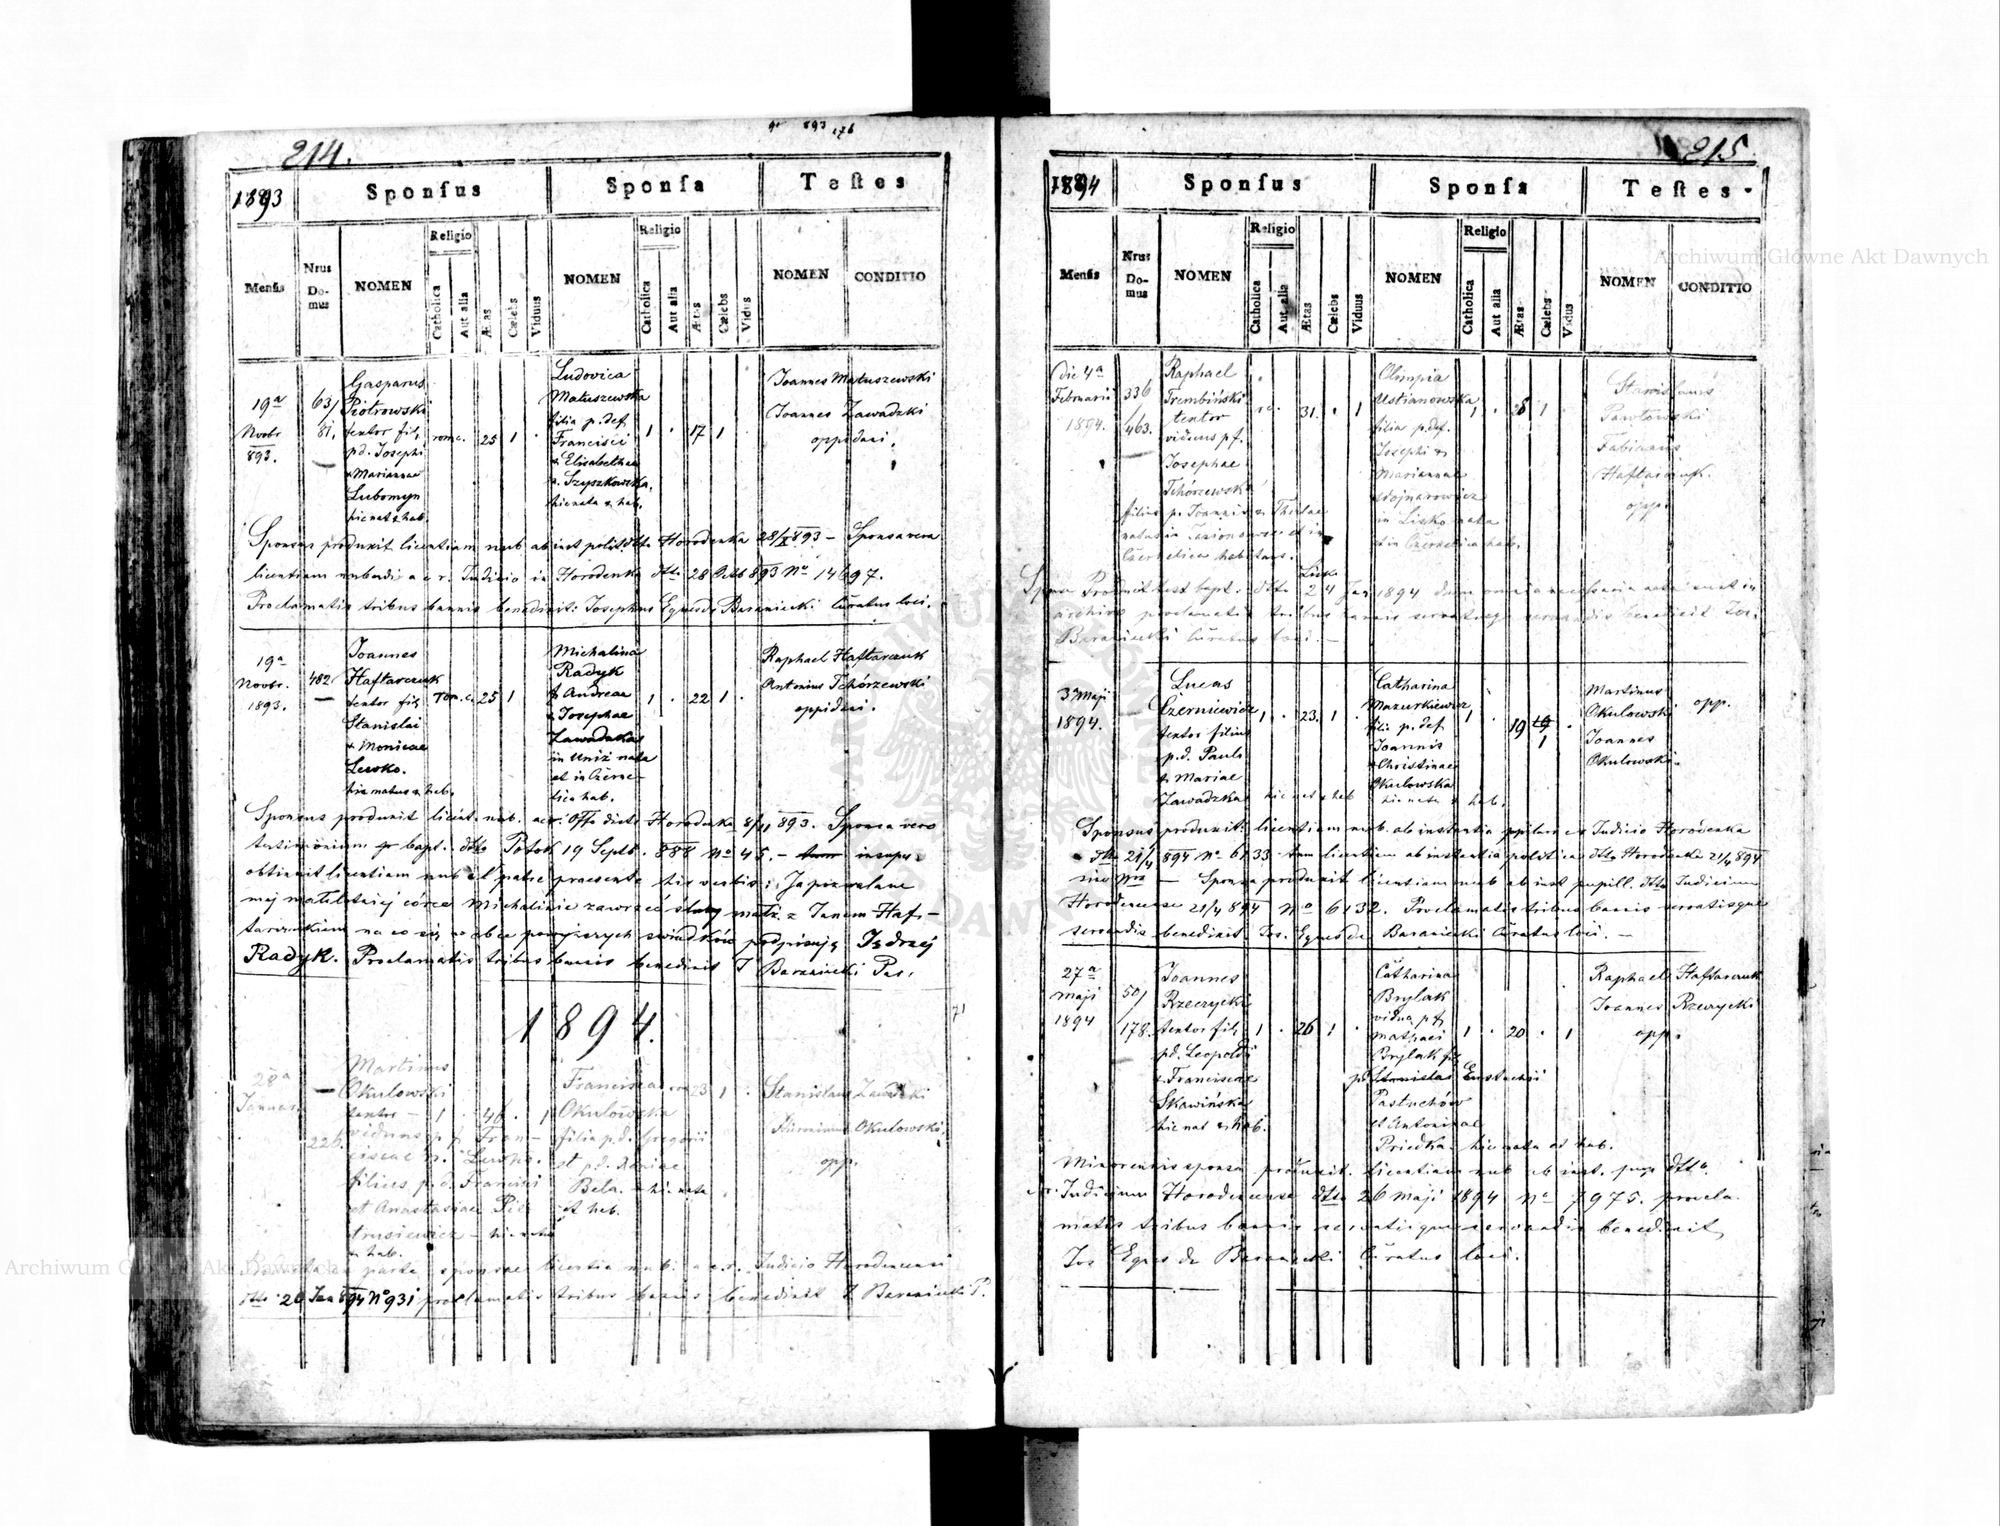 214.
1893
Sponſus
Sponſa
Teſtes
Menſis
Nrus Domus
NOMEN
Religio
Catholica
Aut alia
Ætas
Cœlebs
Viduus
NOMEN
Religio
Catholica
Aut alia
Ætas
Cœlebs
Vidus
NOMEN
CONDITIO
19a
Novbr
893.
63/
81.
Gasparus
Piotrowski
tentor fil.
pd. Josephi
& Mariannae
Lubomyn
hic nat & hab.
rom c. 25 1 .
Ludovica
Matuszewska
filia p. def.
Francisci
& Elisabethae
n. Szyszkowska,
hic nata & hab.
1 . 17 1
Joannes Matuszewski
Joannes Zawadzki
oppidani.
Sponsus produxit licentiam nub ab inst polit. dtto Horodenka 28/X 893 — Sponsa vero
licentiam nubendi a c. r. Judicio in Horodenka dtto 28 Octb 893 No 14697.
Proclamatis tribus bannis benedixit. Josephus Eques de Baraniecki Curatus loci.
19a
Novbr.
1893.
482
Joannes
Haftarczuk
tentor fil.
Stanislai
& Monicae
Lesko.
hic natus & hab.
rom. c. 25 1
Michalina
Radyk
f. Andreae
& Josephae
Zawadzka
in Uniż nata
et in Czerne-
lica hab.
1 . 22 1 .
Raphael Haftarczuk
Antonius Tchórzewski
oppidani.
Sponsus produxit licent. nub. a c. r. Offo distr Horodenka 8/11 893. Sponsa vero
testimonium bapt. dtto Potok 19 Septb. 888 No 45. — insuper
obtinuit licentiam nub a patre praesente his verbis: Ja pozwalam
mej małoletniej córce Michalinie zawrzeć śluby małż. z Janem Haf-
tarczukiem na co się w obec powyższych świadków podpisuję Jędrzej
Radyk. Proclamatis tribus bannis benedixit J Baraniecki Par.
1894.
28a
Januarii
226
Martinus
Okulowski
tentor — 1 . 46. 1
viduus p. f. Fran-
ciscae n. Lesko.
filius p. d. Francisci
et Anastasiae Pie-
trusiewicz — hic natus
& hab.
Francisca rom 23 1 .
Okulowska
filia p. d. Gregorii
et p. d. Mariae
Beta. — hic nata
et hab.
Stanislaus Zawadzki
Hieronimus Okulowski
opp.
parte sponsae licentia nub. a c. r. Judicio Horodencensi
dtto 20 Jan 894 No 931 proclamatis tribus bannis benedixit J Baraniecki P.
215
1894
Sponſus
Sponſa
Teſtes
Menſis
Nrus Domus
NOMEN
Religio
Catholica
Aut alia
Ætas
Cœlebs
Viduus
NOMEN
Religio
Catholica
Aut alia
Ætas
Cœlebs
Vidus
NOMEN
CONDITIO
Die 4a
Februarii
1894.
336
/463.
Raphael
Trembiński
tentor
viduus p f.
Josephae
Tchórzewska
filius p. Joannis & Theclae
Czernelica habitans.
31. . 1
Olimpia
Ustianowska
filia p. def.
Josephi &
Mariannae
Wojnarowicz
in Lisko nata
et in Czernelica hab.
1 . 28 1 .
Stanislaus
Pawłowski
Fabianus
Haftarczuk.
opp.
Produxit test bapt. dtto Lisko 24 Jan 1894 dum omnia necessaria
archivo proclamatis tribus bannis servatisque servandis benedixit Jos.
Baraniecki Curatus loci. —
3 Maji
1894.
Lucas
Czerniewicz
tentor filius
p. d. Pauli
& Mariae
Zawadzka hic nat & hab
1 . 23. 1 .
Catharina
Mazurkiewicz
filia p. def.
Joannis
& Christinae
Okulowska
hic nata & hab.
1 . 19 19 .
1
Martinus
Okulowski
Joannes
Okulowski.
opp.
Sponsus produxit licentiam nub. ab instantia Judicio Horodenka
dtto 21/4 894 No 6133 licentiam ab instantia politica dtto Horodenka 21/4 894
sine Nro — Sponsa produxit licentiam nub ab inst pupill. dtto Judicium
Horodencense 21/4 894 No 6132. Proclamatis tribus bannis servatisque
servandis benedixit. Jos. Eques de Baraniecki Curatus loci. —
27a
Maji
1894
50/
178.
Joannes
Rzeczycki
tentor fil.
pd. Leopoldi
& Franciscae
Skawińska
hic nat & hab.
1 . 26 1 .
Catharina
Brylak
vidua p f.
Mathaei
Brylak fil
pd Stanislai Eustachii
Pastuchów
et Antoninae
Priedka. hic nata et hab.
1 . 20 . 1
Raphael Haftarczuk
Joannes Rzeczycki
opp.
Minorennis sponsa produxit. licentiam nub ab inst. pup dtto.
c. r. Judicium Horodencense dtto 26 Maji 1894 No 7975. procla-
matis tribus bannis servatisque servandis benedixit
Jos Eques de Baraniecki Curatus loci.
Archiwum Główne Akt Dawnych
Archiwum Główne Akt Dawnych